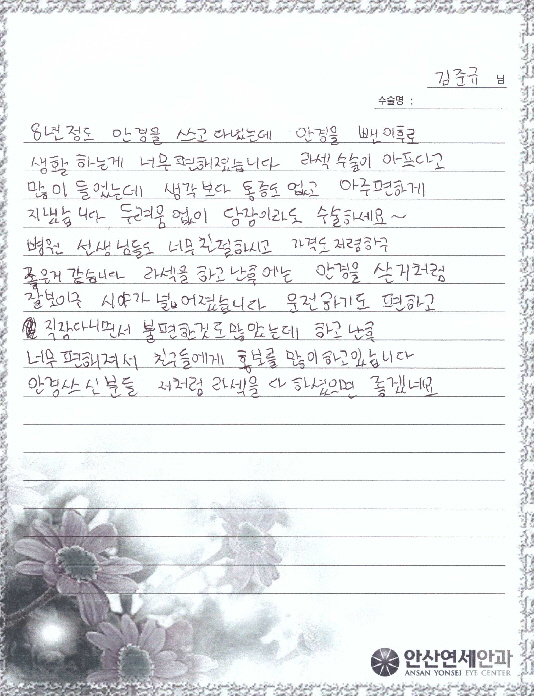 김준규 님
수술명 :
8년정도 안경을 쓰고 다녔는데 안경을 뺀 이후로
생활 하는게 너무 편해졌습니다 라섹 수술이 아프다고
많이 들었는데 생각보다 통증도 없고 아주편하게
지냈습니다 두려움 없이 당장이라도 수술하세요~
병원 선생님들도 너무친절하시고 가격도 저렴하구
좋은거 같습니다 라섹을 하고 난후에는 안경을 쓴거처럼
잘보이구 시야가 넓어졌습니다 운전하기도 편하고
직장다니면서 불편한것도많았는데 하고 난후
너무편해져서 친구들에게 홍보를 많이하고있습니다
안경쓰신분들 저처럼 라섹을 다 하셨으면 좋겠네요
안산연세안과
ANSAN YONSEI EYE CENTER